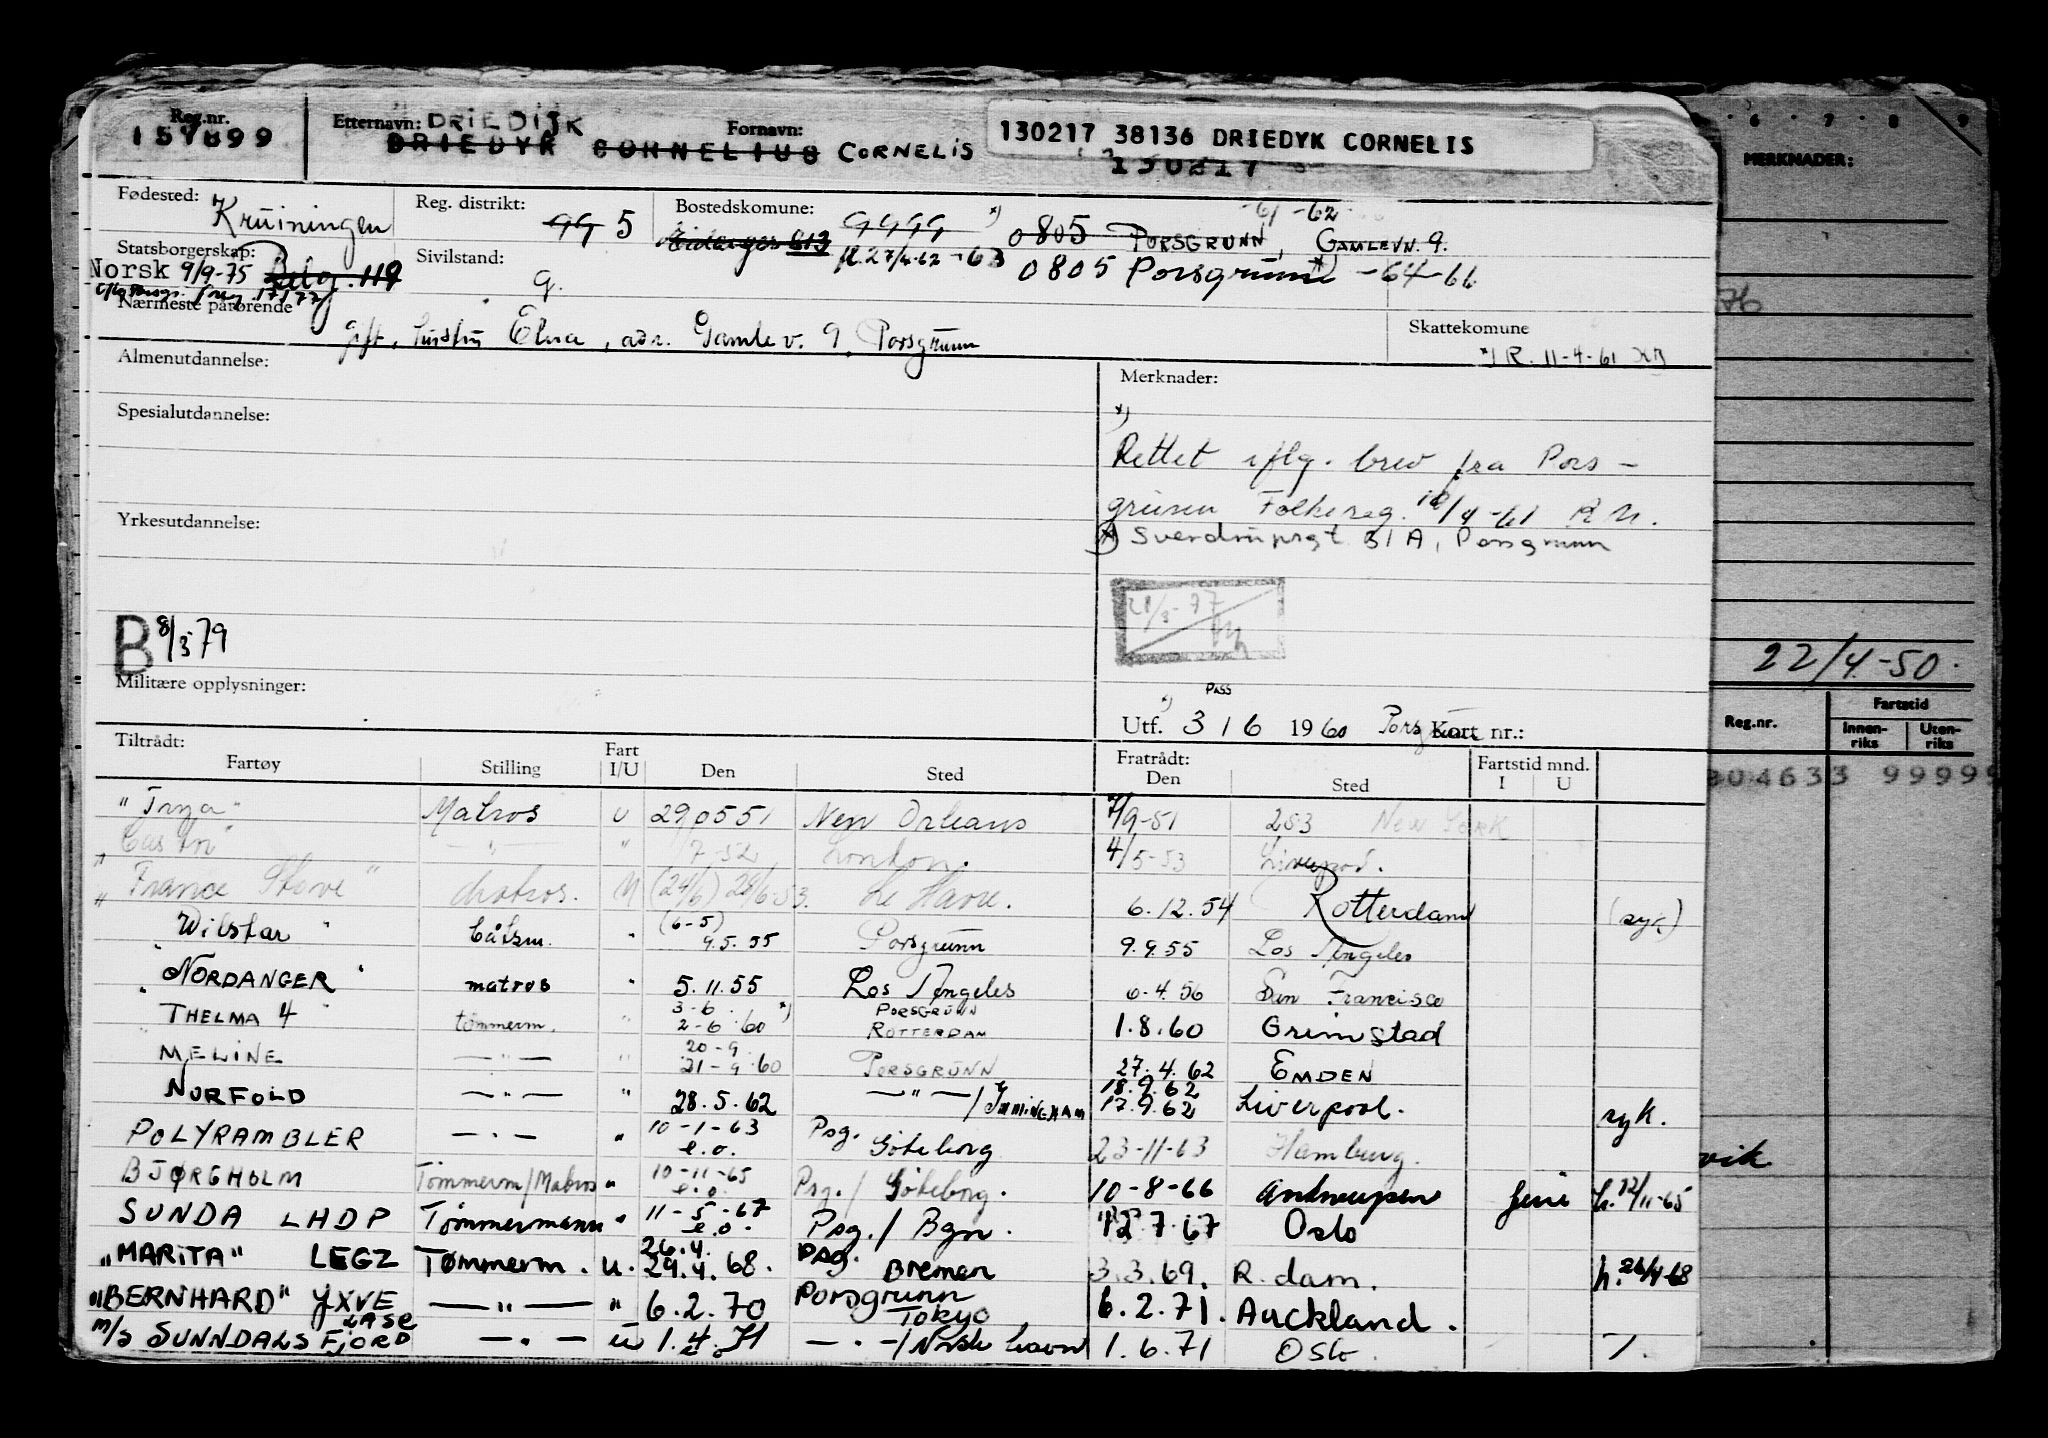 Reg.nr. Etternavn: DRIEDIJK Fornavn: 130217 38136 DRIEDYK CORNELIS
DRIEDYK CORNELIUS CORNELIS 130217
Fødested: Kruiningen Reg. distrikt: 99 5 Bostedskomune: 9999 *) 0805 PORSGRUNN, GAMLEVN. 9. -61 -62
Statsborgerskap: Norsk 9/9-75 Belg. Sivilstand: g. fl. 27/4-62 -63 0805 Porsgrunn *) -64-66
Nærmeste pårørende gift, hustru Elna, adr. Gamle v. 9, Porsgrunn Skattekomune
*) R. 11-4-61
Almenutdannelse: Merknader:
Spesialutdannelse: *)
Rettet iflg. brev fra Pors-
grunn Folkereg. 10/4-61 R N.
Yrkesutdannelse: *) Sverdrupsgt 31 A, Porsgrunn
21/3-77
B 8/3 79
Militære opplysninger:
*) Pass
Utf. 3 / 6 1960 Porsgrunn Kort nr.:
Tiltrådt: Fratrådt:
Fartøy Stilling Fart I/U Den Sted Den Sted Fartstid mnd. I U
Matros U 290551 New Orleans 7/9-51 253 New York
" 7 52 London. 4/5-53 Liverpool.
"France Stove" Matros. U (24/6) 28/6-53. Le Havre. 6.12.54 Rotterdam (syk)
Wilstar båtsm. " (6-5) 9.5.55 Porsgrunn 9.9.55 Los Angeles
"NORDANGER" matros " 5.11.55 Los Angeles 6.4.56 San Francisco
THELMA 4 tømmerm. " 3-6 2-6-60 *) PORSGRUNN ROTTERDAM 1.8.60 Grimstad
MELINE — " — " 20-9 21-9-60 PORSGRUNN 27.4.62 EMDEN
NORFOLD — " — " 28.5.62 — " — / IMMINGHAM 18.9.62 17.9.62 Liverpool. syk.
POLYRAMBLER — " — " 10-1-63 e.o. Psg. Göteborg 23-11-63 Hamburg.
BJØRGHOLM Tømmerm/Matros " 10-11-65 e.o. Psg. / Göteborg. 10-8-66 Antwerpen h. 12/11-65
SUNDA LHDP Tømmermann " 11-5-67 e.o. Psg. / Bgn. 12 7 67 Oslo
"MARITA" LEGZ Tømmerm. u. 26.4. 29.4.68. Psg. Bremen 3.3.69. R.dam. h. 26/4-68
"BERNHARD" JXVE — " — " 6.2.70 Porsgrunn Tokyo 6.2.71. Auckland.
M/S SUNNDALSFJORD LASC — " — u 1.4.71 — " — / Norsk havn 1.6.71 Oslo
6 7 8 9
MERKNADER:
76
22/4-50.
Reg.nr. Fartstid
Innen-riks Uten-riks
304633 99999
vik